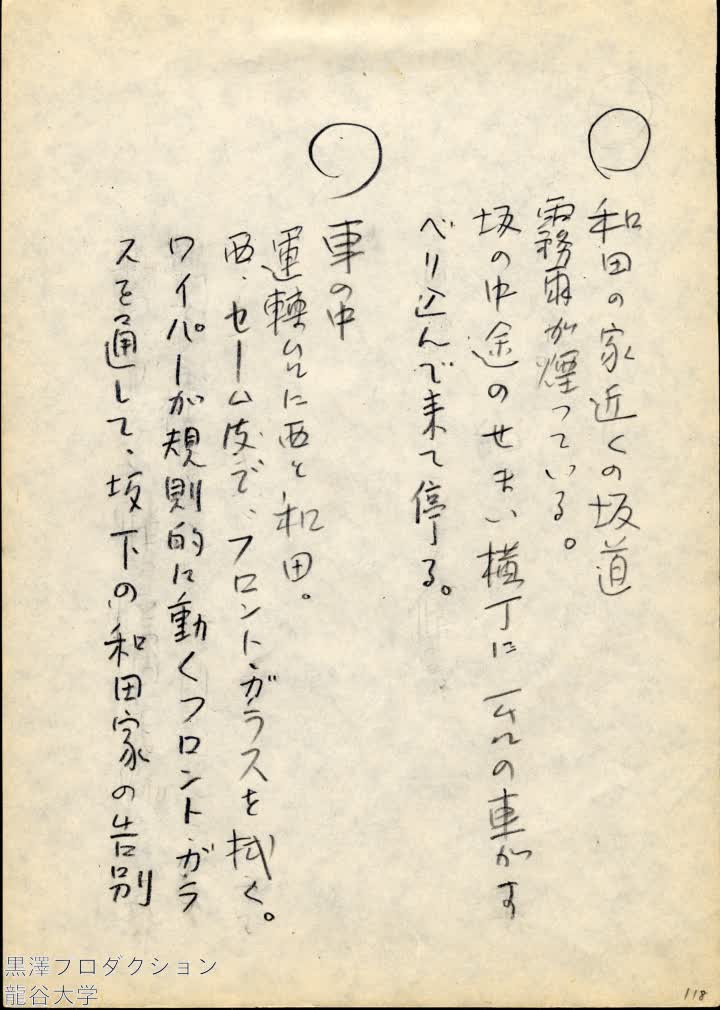 ○
和田の家近くの坂道
霧雨が煙っている。
坂の中途のせまい横丁に一台の車がす
べり込んで来て停る。
○
車の中
運轉台に西と和田。
西、セーム皮で、フロント・ガラスを拭く。
ワイパーが規則的に動くフロント・ガラ
スを通して、坂下の和田家の告別
黒澤プロダクション
龍谷大学
118